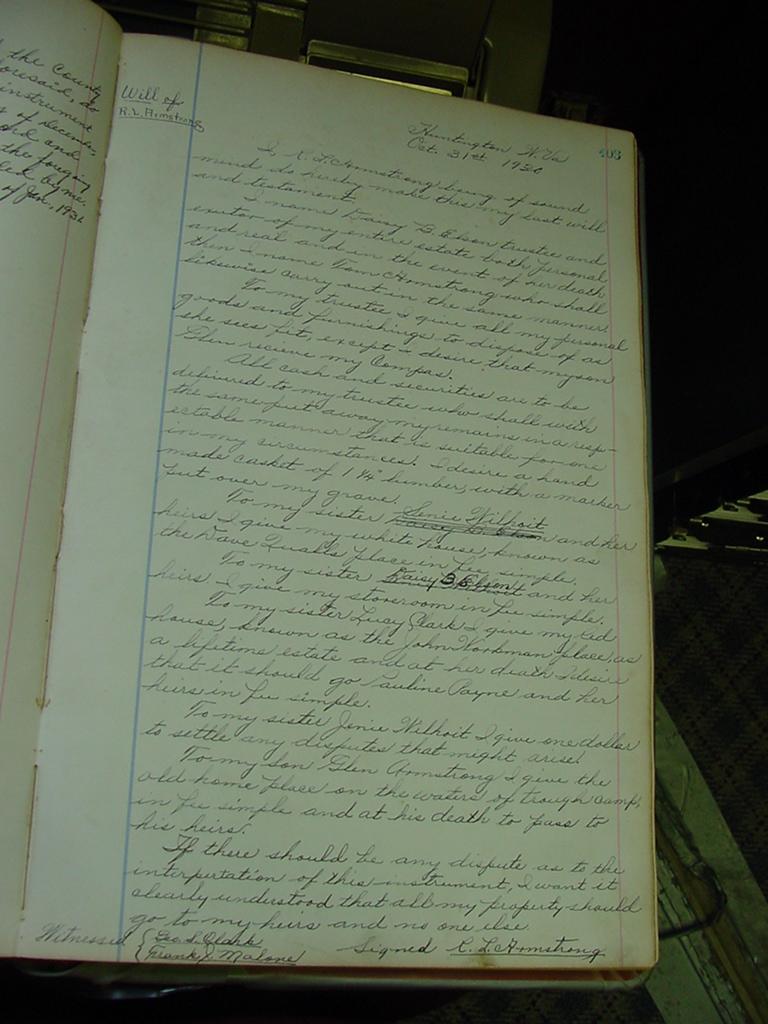 the County
aforesaid, do
instrument
of December,
and
the foregoing
by me.
of Jan, 1931
Will of
R. L. Armstrong
403
Huntington W. Va
Oct. 31st 1930
I, R. L. Armstrong being of sound
mind do hereby make this my last will
and testament.
I name Daisy B. Elson trustee and
exutor of my entire estate both personal
and real and in the event of her death
then I name Tom Armstrong who shall
likewise carry out in the same manner.
To my trustee I give all my personal
goods and furnishings to dispose of as
she sees fit, except I desire that my son
Glen recieve my Compas.
All cash and securities are to be
delivered to my trustee who shall with
the same put away my remains in a resp-
ectable manner that is suitable for one
in my circumstances. I desire a hand
made casket of 1 1/4" lumber, with a marker
put over my grave.
To my sister Jenie Wilhoit Daisy B. Elson and her
heirs I give my white house, known as
the Dave Qualls place in fee simple.
To my sister Daisy B Elson and her
heirs I give my storeroom in fee simple.
To my sister Lucy Clark I give my red
house, known as the John Workman place, as
a lifetime estate and at her death I desire
that it should go Pauline Payne and her
heirs in fee simple.
To my sister Jenie Wilhoit I give one dollar
to settle any disputes that might arise.
To my son Glen Armstrong I give the
old home place on the waters of trough Camp,
in fee simple and at his death to pass to
his heirs.
If there should be any dispute as to the
interpertation of this instrument, I want it
clearly understood that all my property should
go to my heirs and no one else.
Witnessed { Geo. S. Clark Signed R. L. Armstrong
{ Frank J. Malone